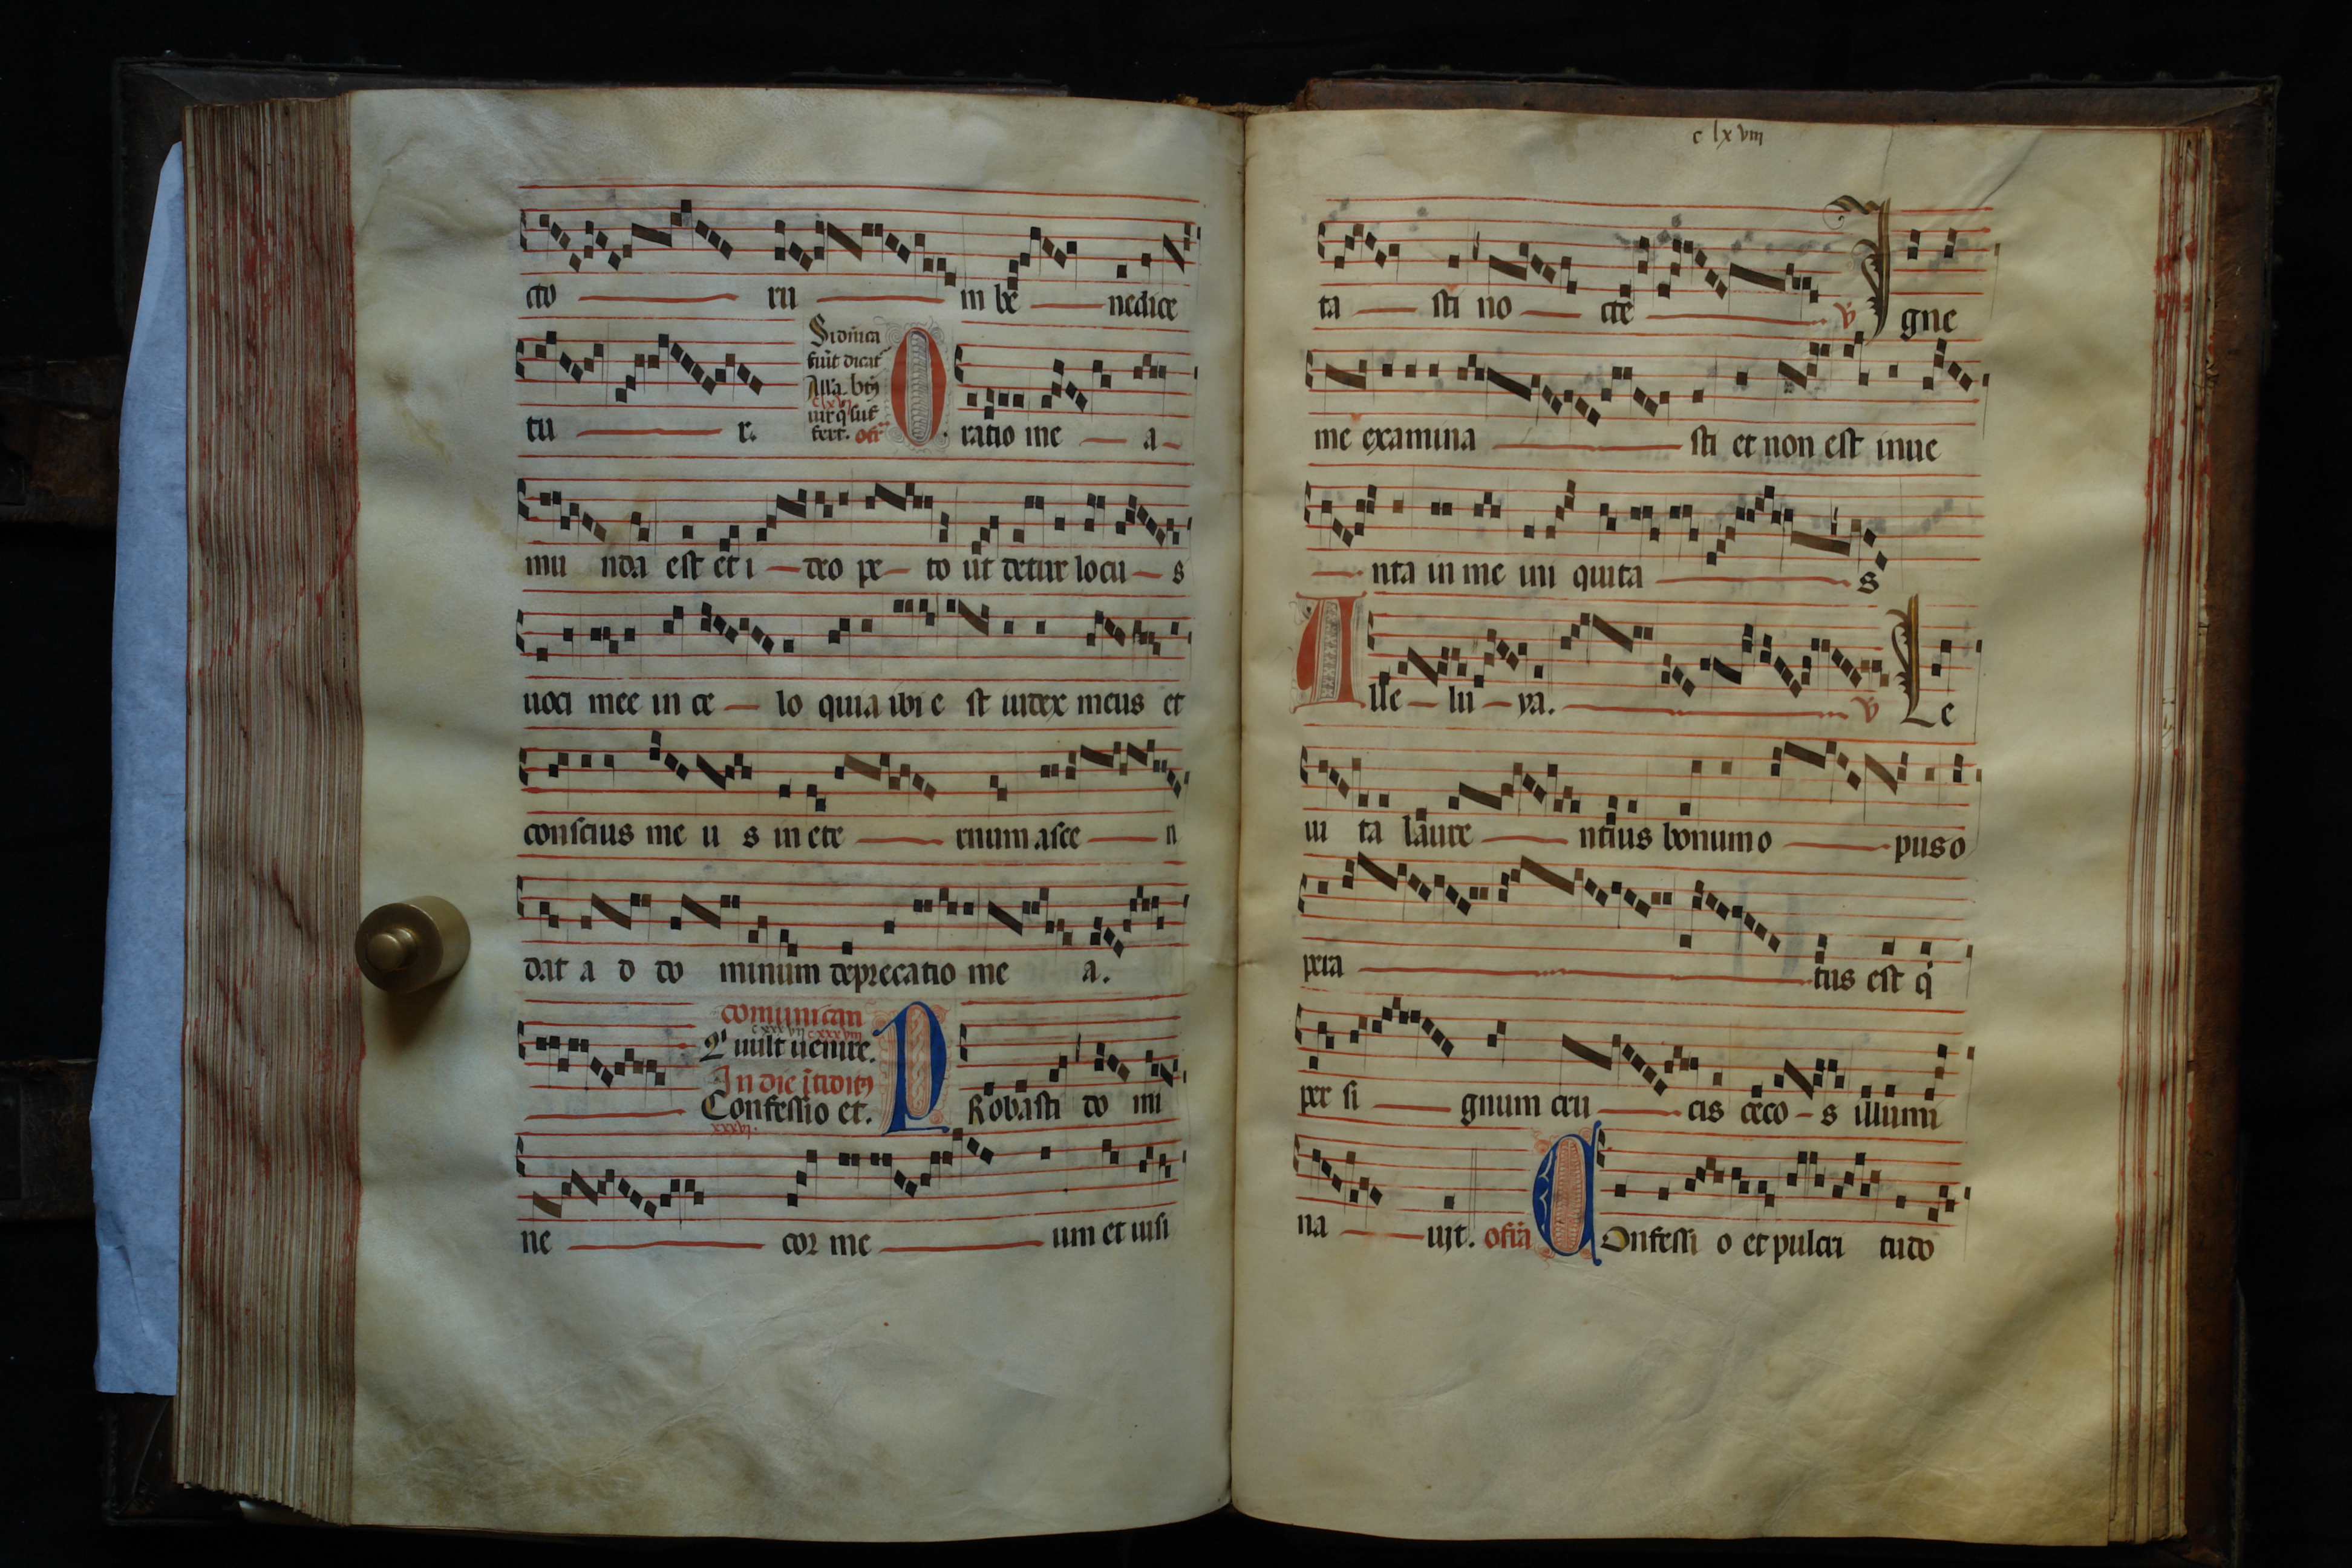 cto ru m be nedice
Si dn̄ica
fuit dicat̄
tu r.
All'a. bt̄s
clxvi
uir q̄ suf
fert. ofr̄
O ratio me a
mu nda est et i deo pe to ut detur locu s
uoci mee in ce lo quia ibi e st iudex meus et
conscius me u s in ete rnum .asce n
dat a d do minum deprecatio me a.
comunican
cxxxvii cxxxviii
Qi uult uenire.
In die
Confessio et.
xxxvi.
P Robasti do mi
ne cor me um et uisi
clxviii
ta sti no cte V̄ I gne
me examina sti et non est inue
nta in me ini quita s
A lle lu ya. V̄ Le
ui ta laure ntius bonum o pus o
pera tus est q̇
per si gnum cru cis ceco s illumi
na uit. ofr̄a C Onfessi o et pulcri tudo